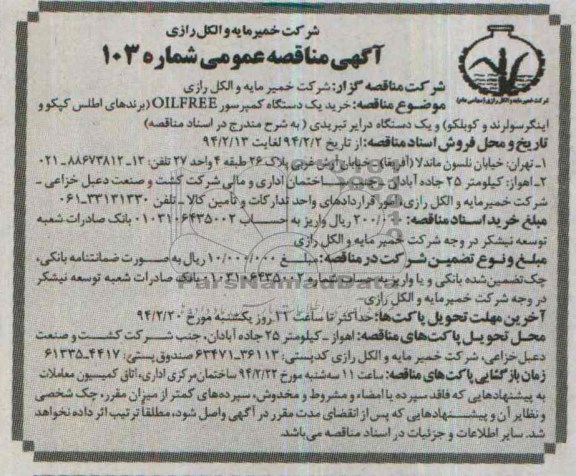 شرکت خمیر مایه و الکل رازی
آگهی مناقصه عمومی شماره ۱۰۳
شرکت مناقصه گزار: شرکت خمیر مایه و الکل رازی
موضوع مناقصه: خرید یک دستگاه کمپرسور OILFREE (برندهای اطلس کپکو و
اینگرسولرند و کوبلکو) و یک دستگاه درایر تبریدی (به شرح مندرج در اسناد مناقصه)
تاریخ و محل فروش اسناد مناقصه: از تاریخ ۹۴/۲/۲ لغایت ۹۴/۲/۱۳
۱- تهران: خیابان نلسون ماندلا (آفریقا) خیابان غربی پلاک ۲۶ طبقه ۴ واحد ۲۷ تلفن: ۱۳-۸۸۶۷۳۸۱۲-۰۲۱
۲- اهواز: کیلومتر ۲۵ جاده آبادان ساختمان اداری و مالی شرکت کشت و صنعت دعبل خزاعی -
شرکت خمیرمایه و الکل رازی امور قراردادهای واحد تدارکات و تأمین کالا - تلفن ۳۳۱۳۱۳۳۰-۰۶۱
مبلغ خرید اسناد مناقصه: ریال واریز به حساب ۰۱۰۳۱۰۶۴۳۵۰۰۲ بانک صادرات شعبه
توسعه نیشکر در وجه شرکت خمیر مایه و الکل رازی
مبلغ و نوع تضمین شرکت در مناقصه: مبلغ ۱۰/۰۰۰/۰۰۰ ریال به صورت ضمانتنامه بانکی،
چک تضمین شده بانکی و یا واریز به حساب شماره ۰۱۰۳۱۰۶۴۳۵۰۰۲ بانک صادرات شعبه توسعه نیشکر
در وجه شرکت خمیرمایه و الکل رازی
آخرین مهلت تحویل پاکت ها: حداکثر تا ساعت روز یکشنبه مورخ ۹۴/۲/۲۰
محل تحویل پاکت های مناقصه: اهواز - کیلومتر ۲۵ جاده آبادان، جنب شرکت کشت و صنعت
دعبل خزاعی، شرکت خمیر مایه و الکل رازی کدپستی: ۳۶۱۱۳-۶۳۴۷۱ صندوق پستی: ۴۴۱۷-۶۱۳۳۵
زمان بازگشایی پاکت های مناقصه: ساعت ۱۱ سه شنبه مورخ ۹۴/۲/۲۲ ساختمان مرکزی اداری، اتاق کمیسیون معاملات
به پیشنهادهایی که فاقد سپرده یا امضاء و مشروط و مخدوش، سپرده های کمتر از میزان مقرر، چک شخصی
و نظایر آن و پیشنهادهایی که پس از انقضای مدت مقرر در آگهی واصل شود، مطلقاً ترتیب اثر داده نخواهد
شد. سایر اطلاعات و جزئیات در اسناد مناقصه می باشد.